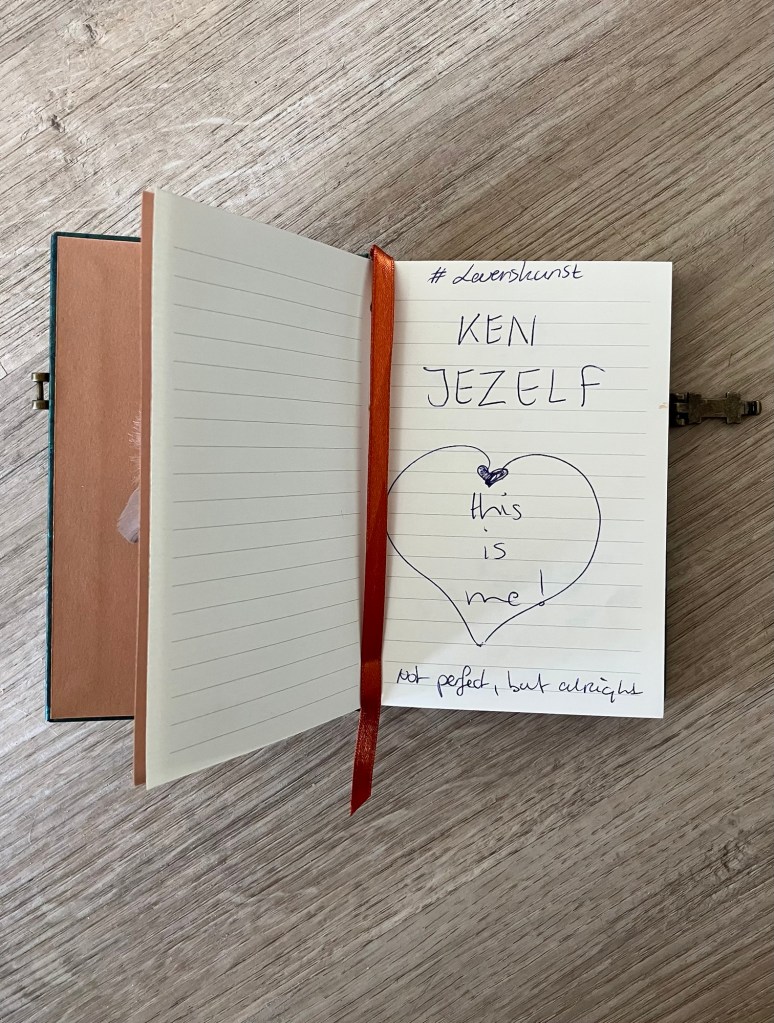 # Levenskunst
KEN
JEZELF
this
is
me!
Not perfect, but alright